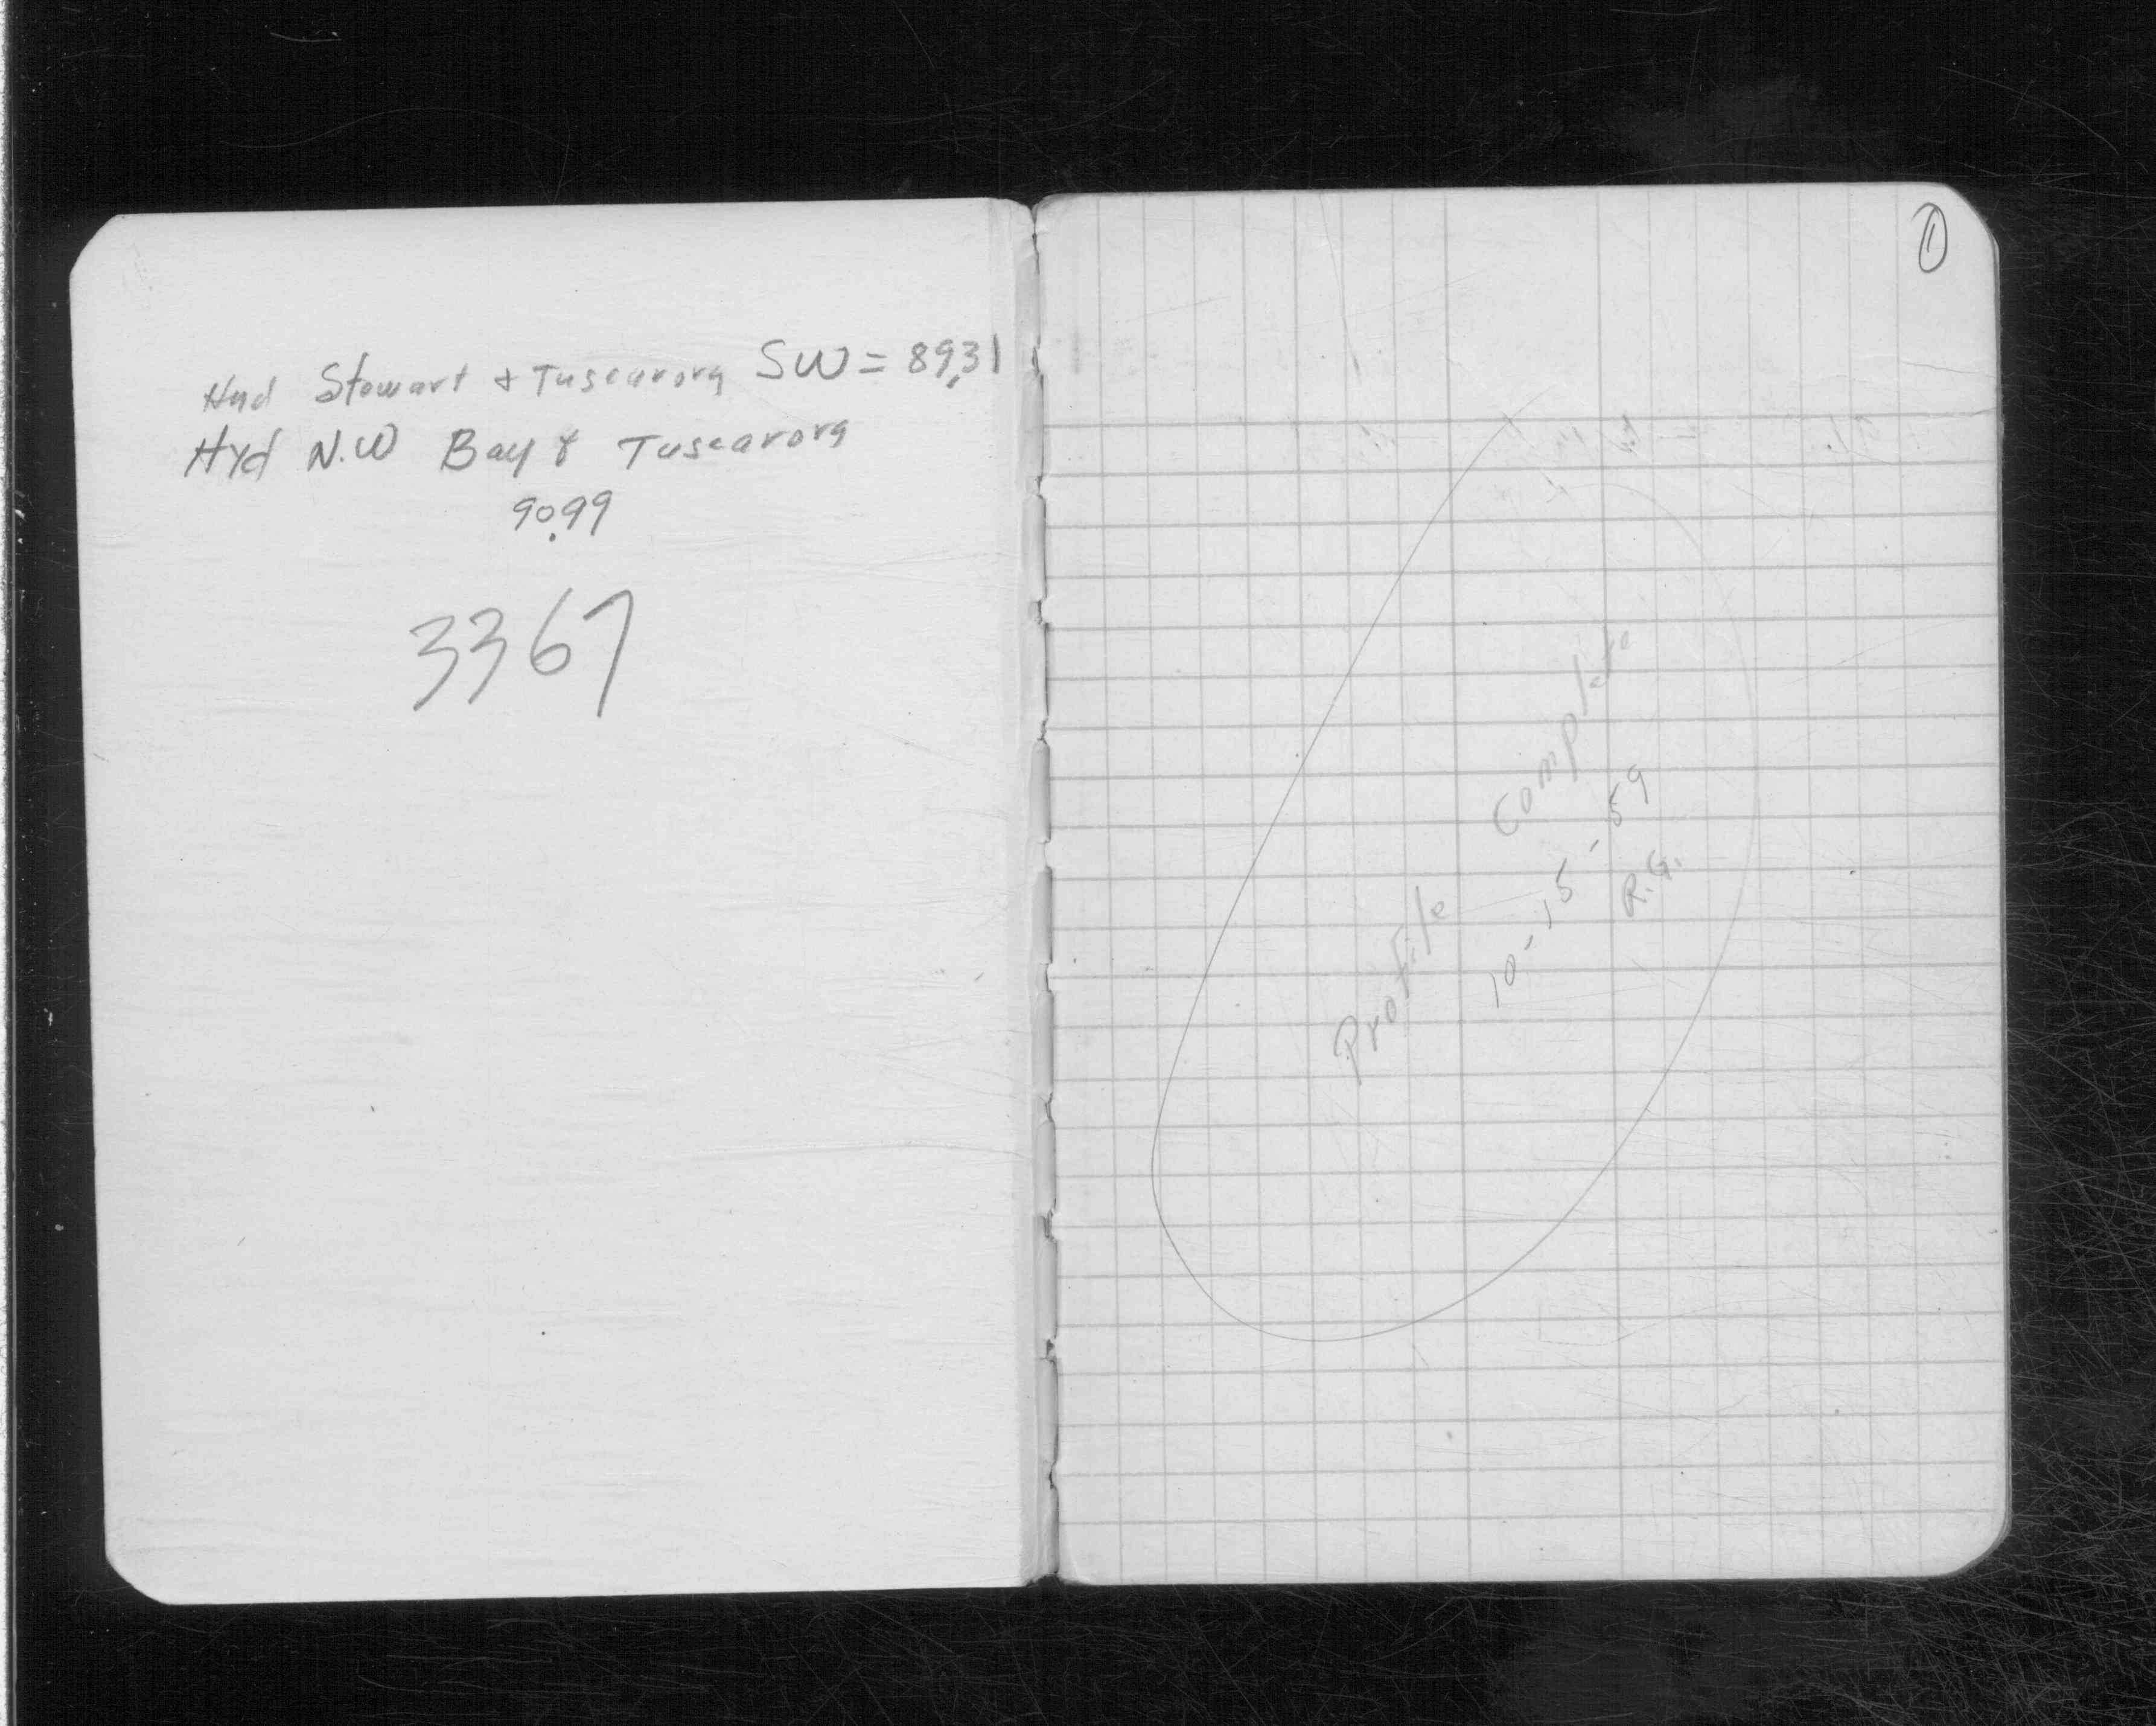 Hyd Stewart & Tuscarora SW = 89.31
Hyd N.W Bay & Tuscarora
90.99
3367
1
Profile Complete
10-15-59
R.G.